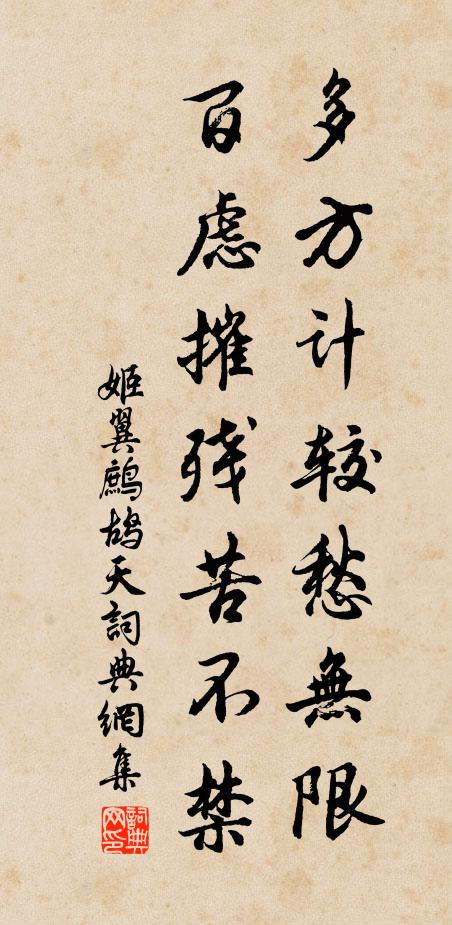 多方计较愁無限
百慮摧残苦不禁
姬翼鷓鴣天詞典網集
詞典网印